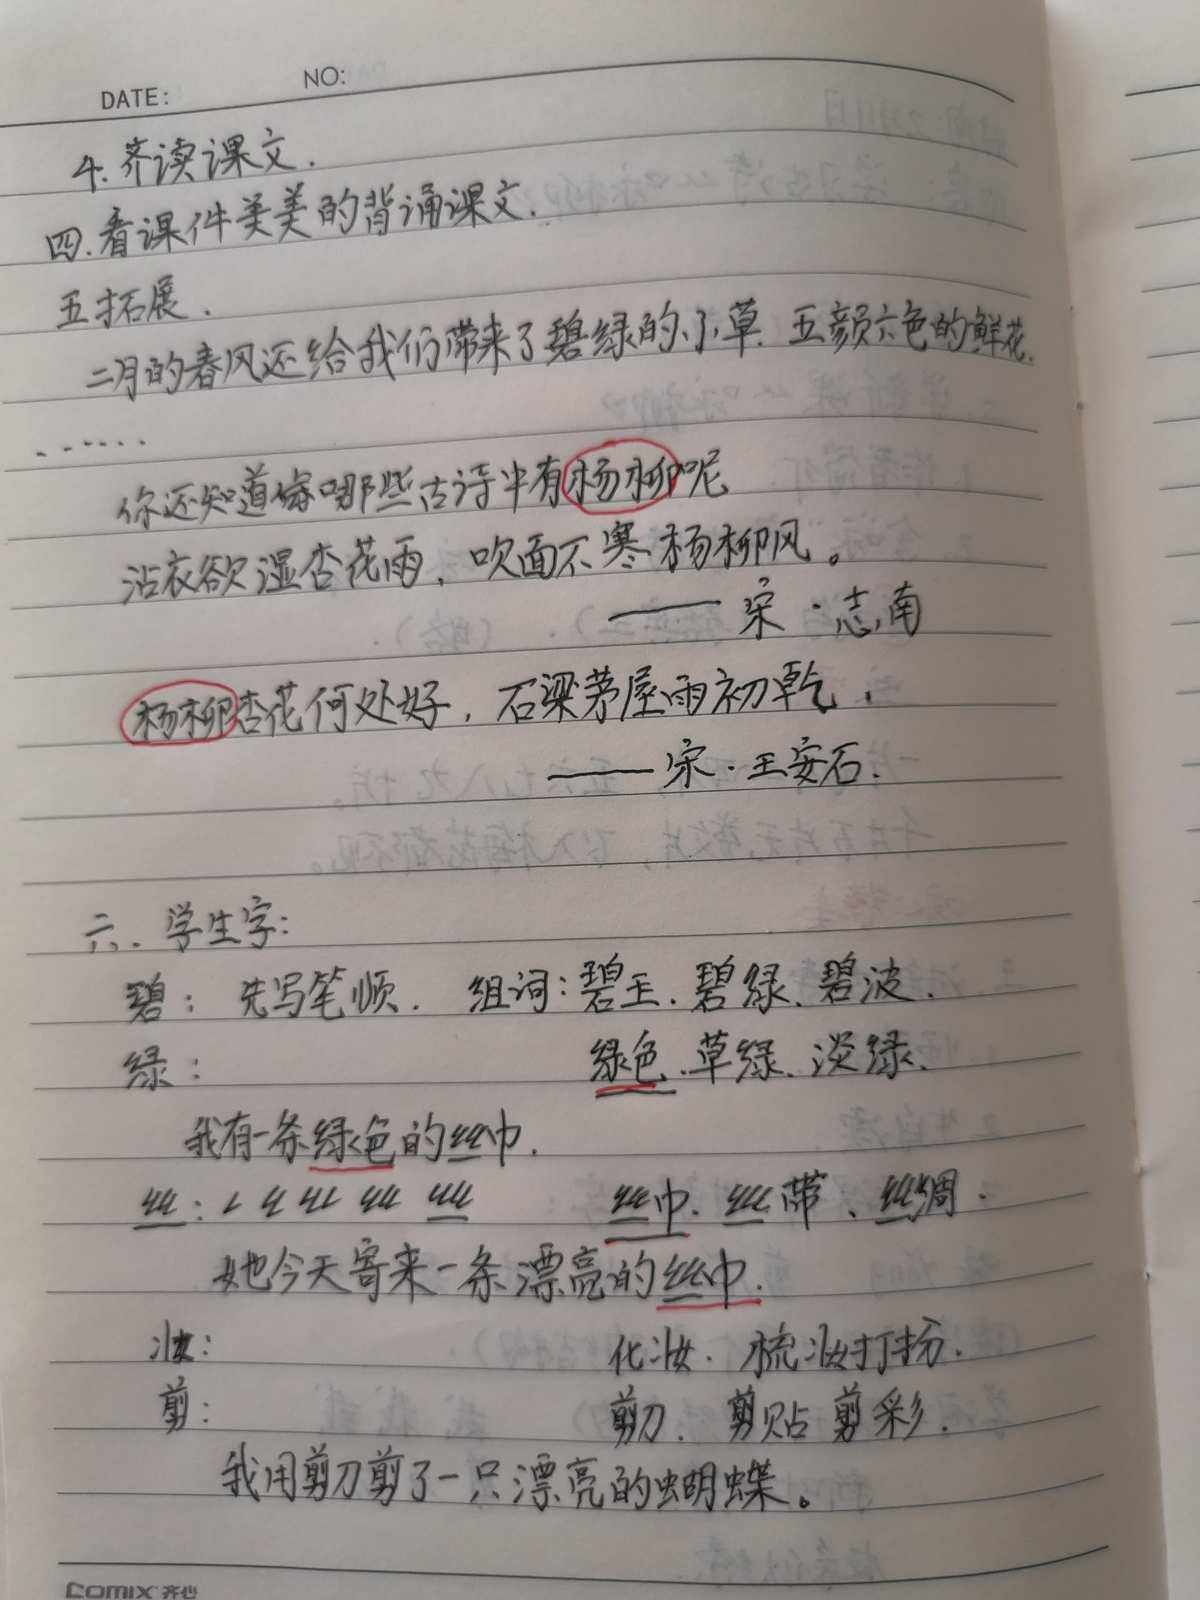 DATE:
NO:
4.齐读课文.
四.看课件美美的背诵课文.
五拓展.
二月的春风还给我们带来了碧绿的小草.五颜六色的鲜花.
......
你还知道哪些古诗中有杨柳呢
沾衣欲湿杏花雨,吹面不寒杨柳风。
——宋·志南
杨柳杏花何处好,石梁茅屋雨初乾,
——宋·王安石.
六.学生字:
碧:先写笔顺.组词:碧玉.碧绿.碧波.
绿: 绿色.草绿、淡绿.
我有一条绿色的丝巾.
丝: 丝巾.丝带、丝绸.
她今天寄来一条漂亮的丝巾.
妆: 化妆.梳妆打扮.
剪: 剪刀.剪贴 剪彩.
我用剪刀剪了一只漂亮的蝴蝶。
COMIX 齐心